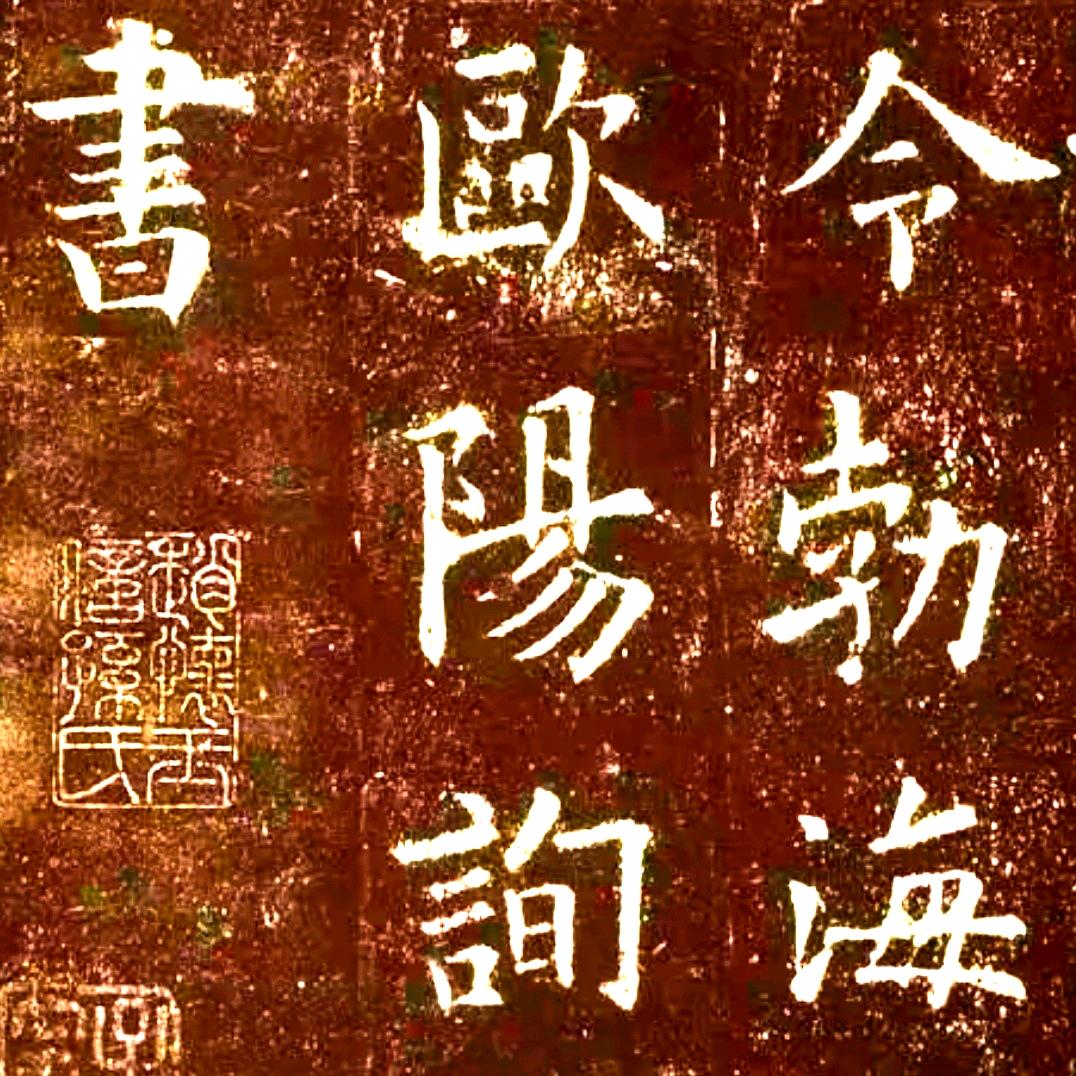 令勃海
歐陽詢
書